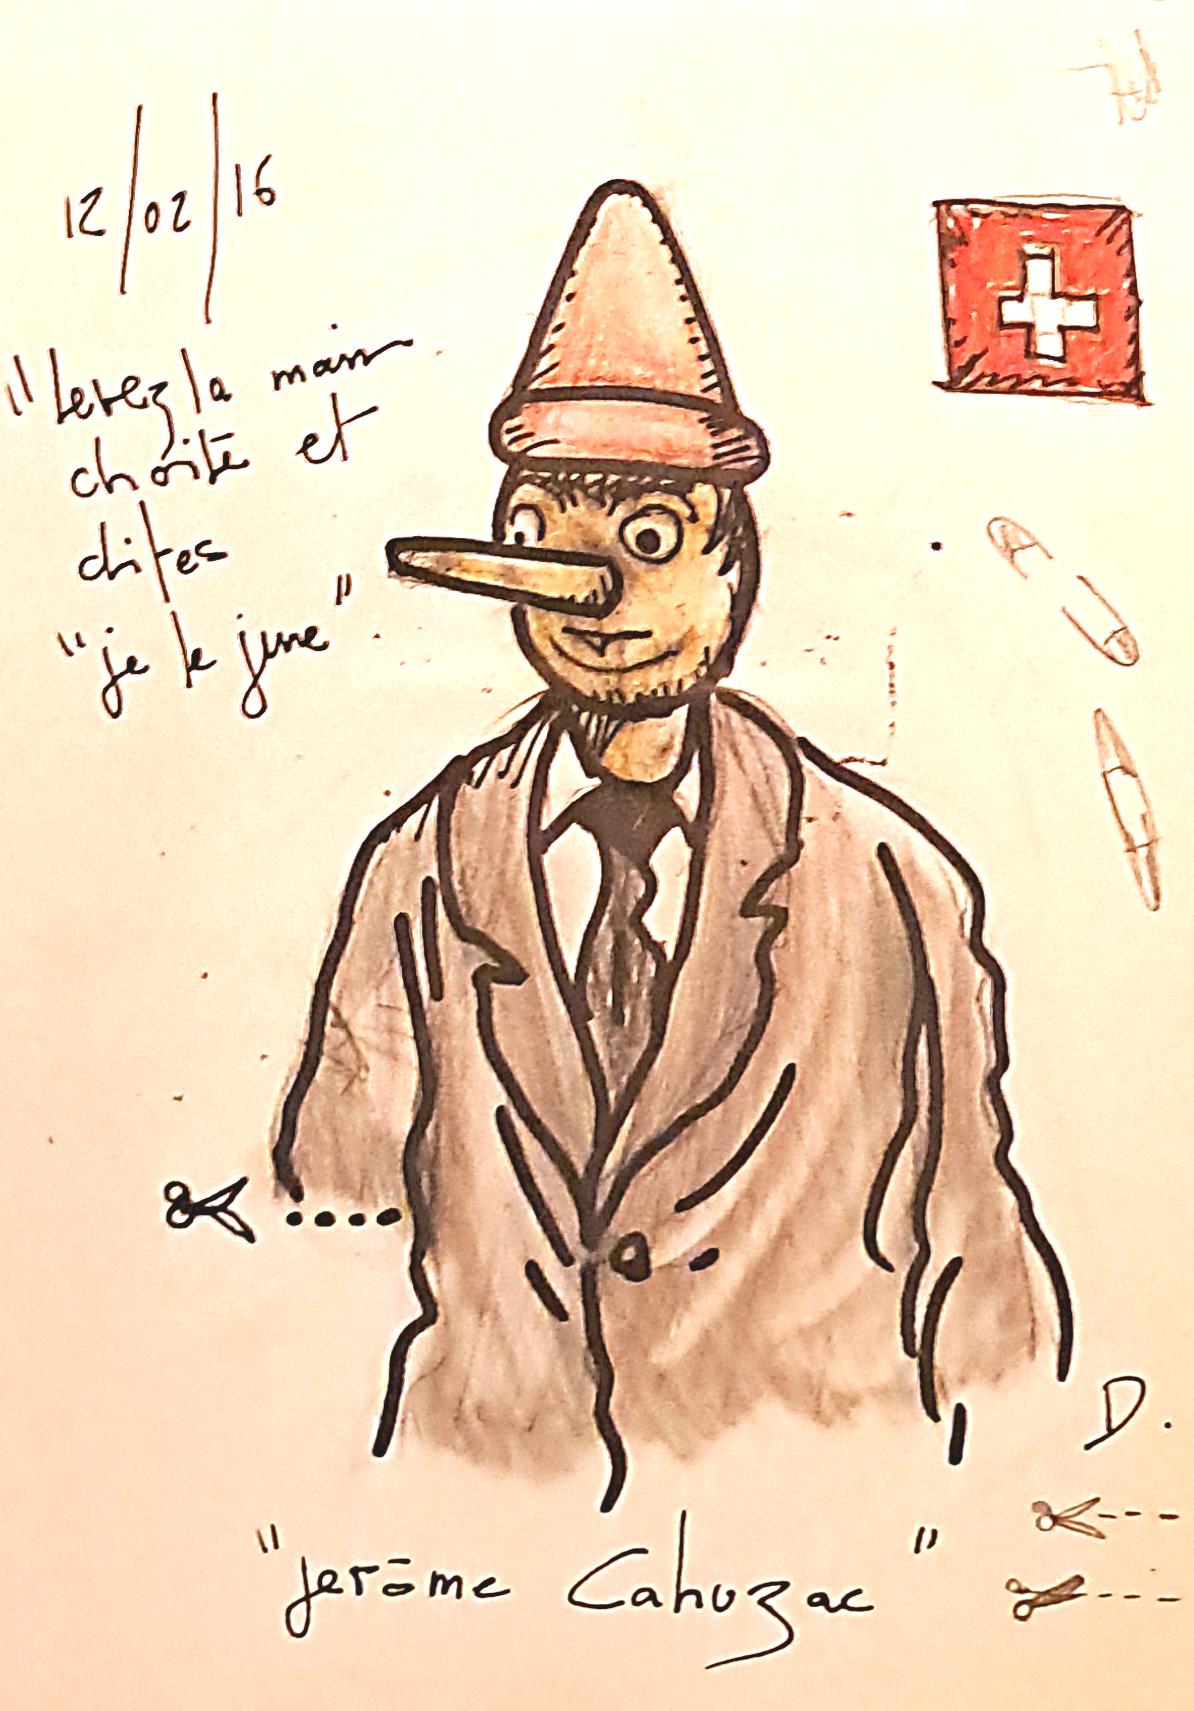 12/02/16
"levez la main
droite et
dites
"je le jure"
D.
"jerôme Cahuzac"